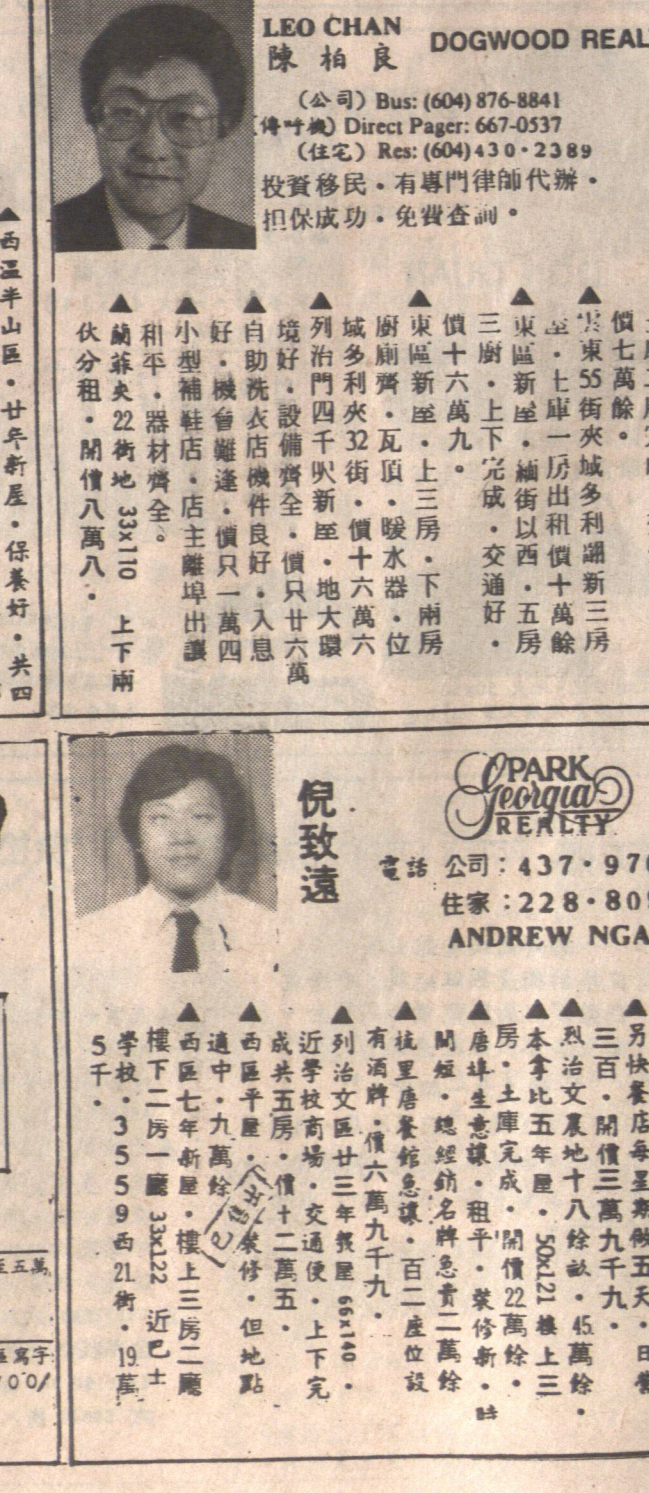 LEO CHAN
陳柏良
DOGWOOD REAL
（公司）Bus: (604) 876-8841
傳呼機) Direct Pager: 667-0537
（住宅）Res: (604) 430・2389
投資移民・有專門律師代辦・
担保成功・免費查詢・
價七萬餘。
▲雲東55街夾城多利翻新三房
・土庫一房出租價十萬餘
▲東區新屋・緬街以西・五房
三廚・上下完成・交通好・
價十六萬九。
▲東區新屋・上三房・下兩房
廚廁齊・瓦頂・暖水器・位
城多利夾32街・價十六萬六
▲列治門四千呎新屋・地大環
境好・設備齊全・價只廿六萬
▲自助洗衣店機件良好・入息
好・機會難逢・價只一萬四
▲小型補鞋店・店主離埠出讓
和平・器材齊全。
▲蘭菲夾22街地 33x110 上下兩
伙分租・開價八萬八・
▲西溫半山區・廿年新屋・保養好・共四
倪致遠
PARK
Georgia
REALTY
電話 公司：437・970
住家：228・809
ANDREW NGA
▲另快餐店每星期做五天・日營
三百・開價三萬九千九・
▲烈治文農地十八餘畝・45萬餘・
▲本拿比五年屋・50x121 樓上三
房・土庫完成・開價22萬餘・
▲唐埠生意讓・租平・裝修新・時
間短・總經銷名牌急賣二萬餘
▲梳里唐餐館急讓・百二座位設
有酒牌・價六萬九千九・
▲列治文區廿三年舊屋 66x140・
近學校商場・交通便・上下完
成共五房・價十二萬五・
▲西區平屋・裝修・但地點
適中・九萬餘
已售出
▲西區七年新屋・樓上三房二廳
樓下二房一廳 33x122 近巴士
學校・3559西21街・19萬
5千・
五萬
寫字